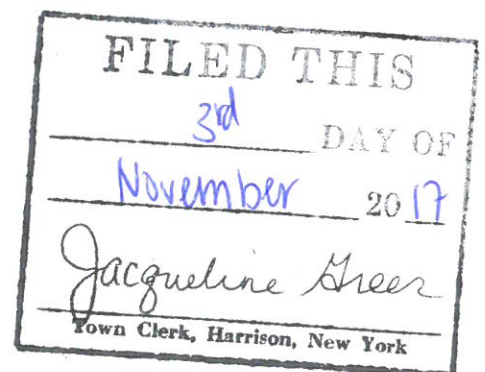 FILED THIS
3rd DAY OF
November 2017
Jacqueline Greer
Town Clerk, Harrison, New York